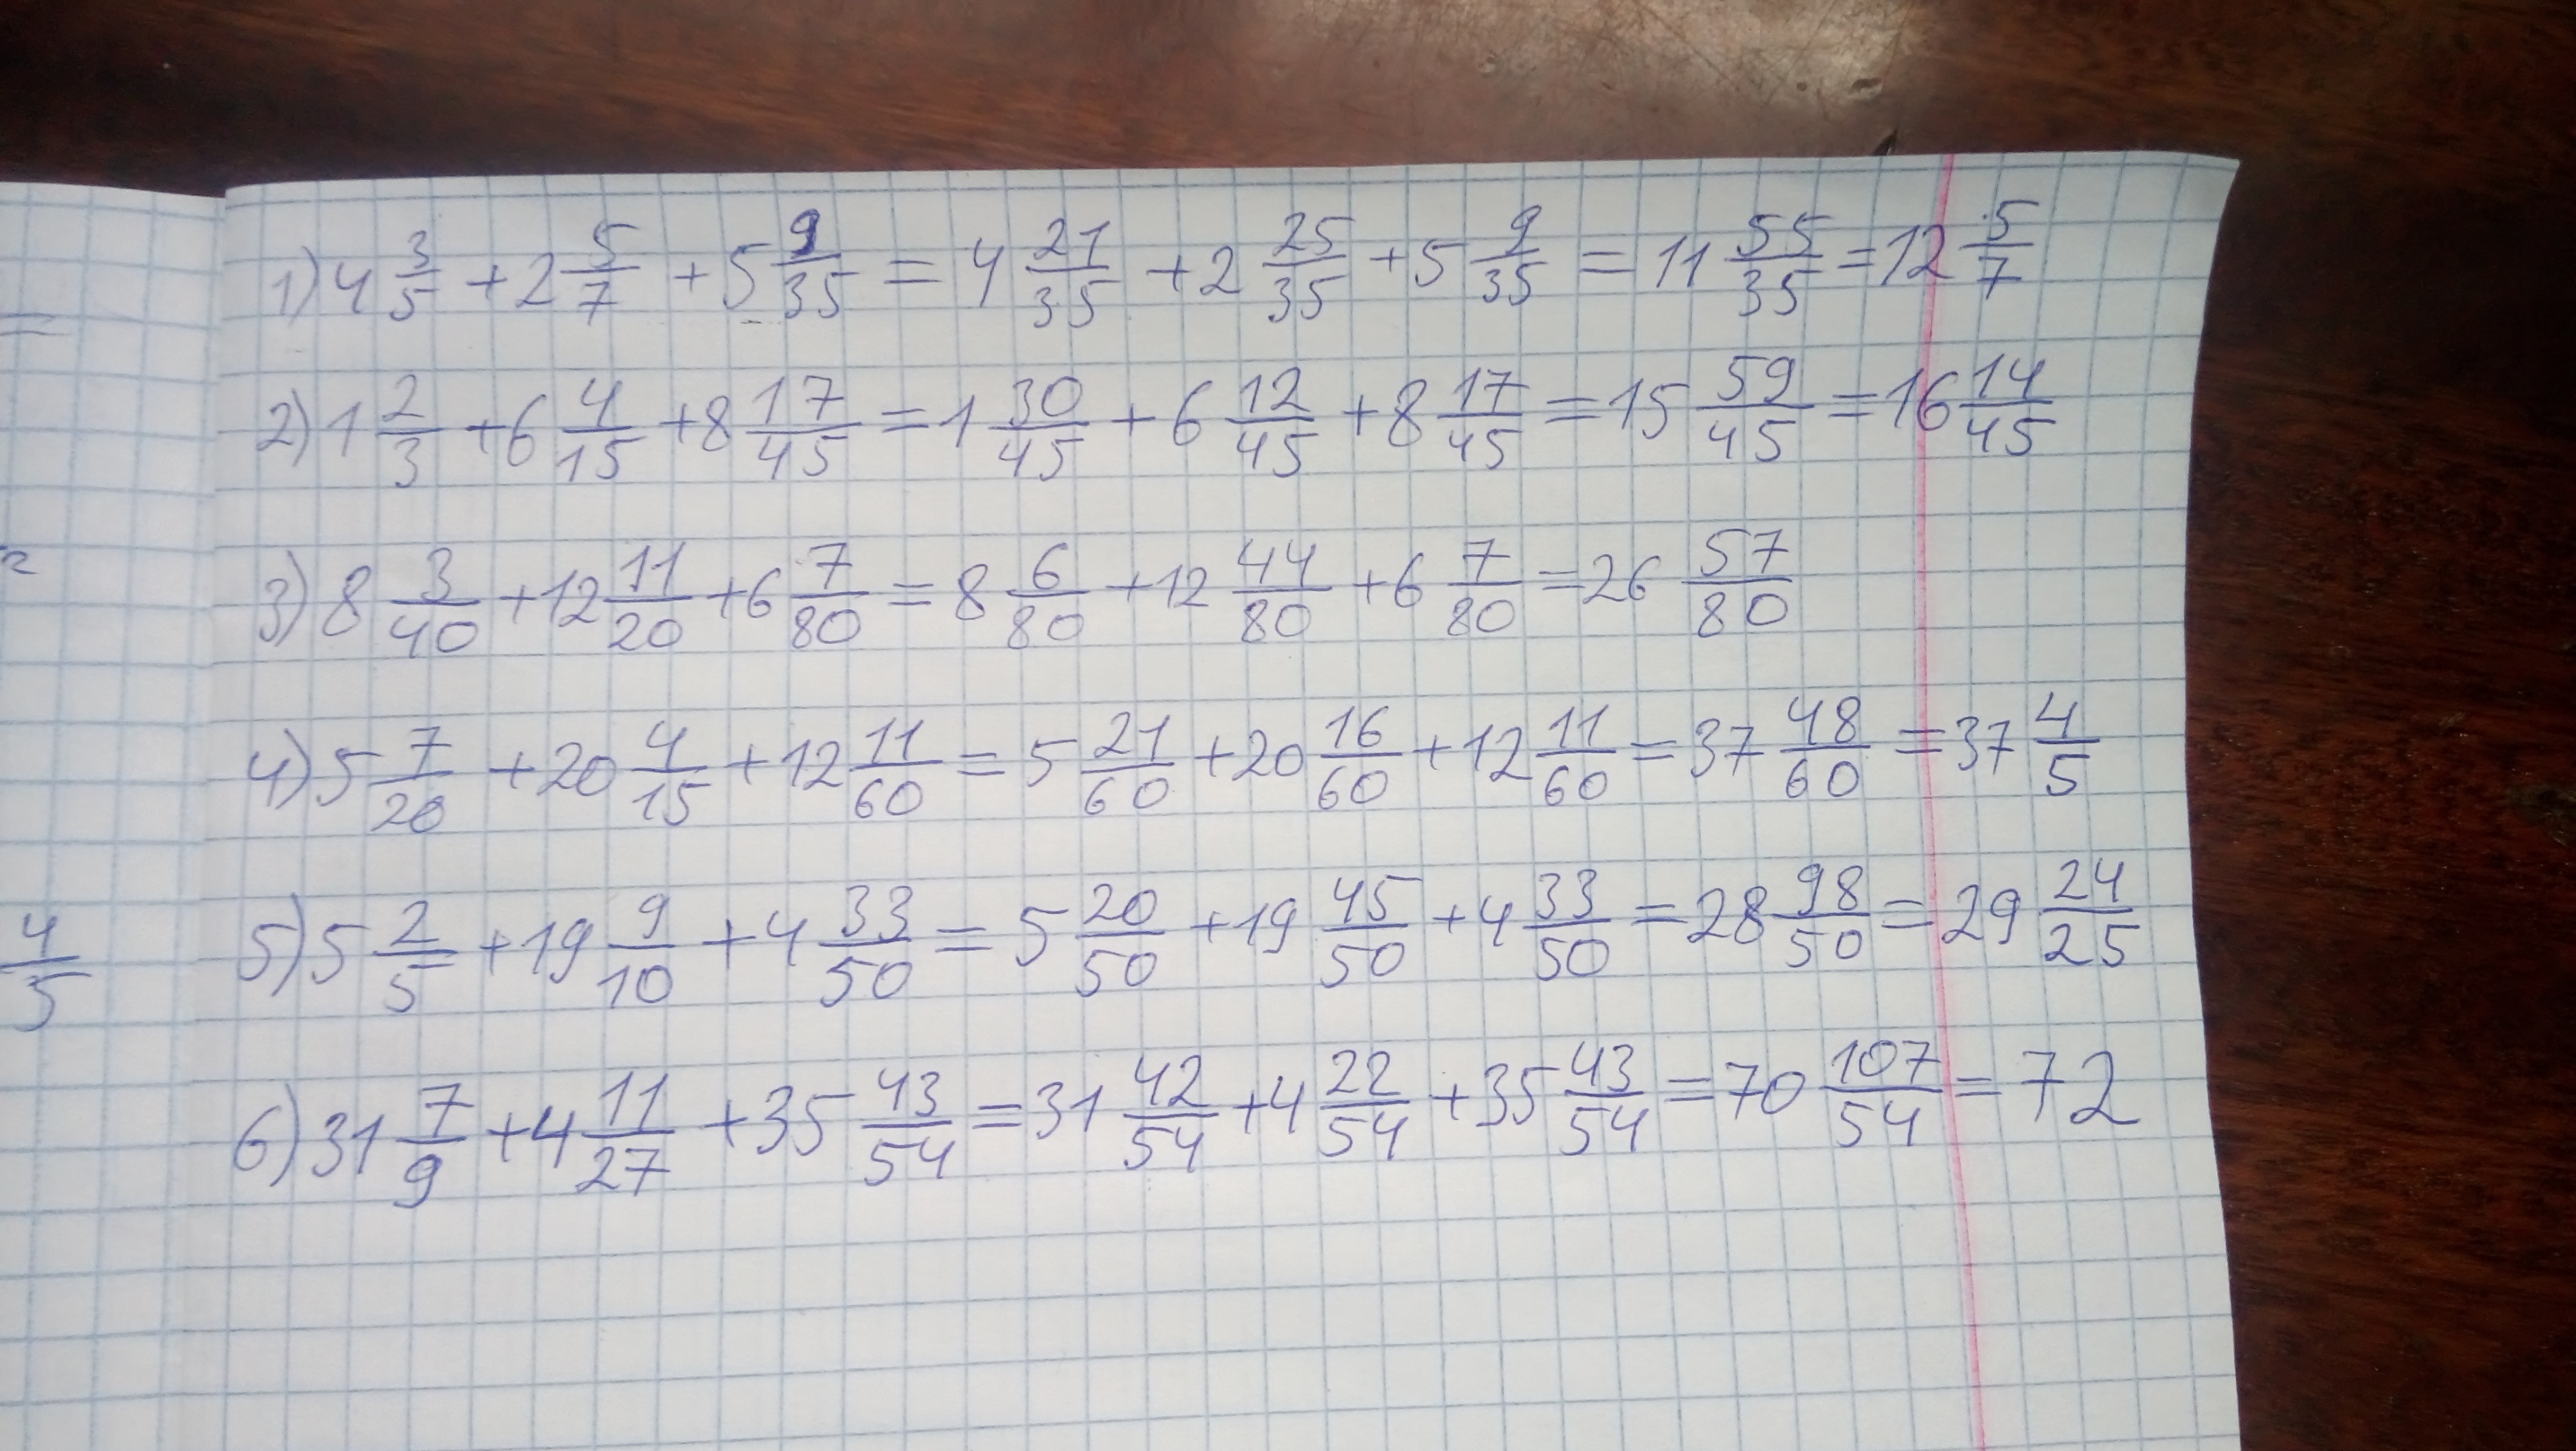 1) 4 3/5 + 2 5/7 + 5 9/35 = 4 21/35 + 2 25/35 + 5 9/35 = 11 55/35 = 12 5/7
2) 1 2/3 + 6 4/15 + 8 17/45 = 1 30/45 + 6 12/45 + 8 17/45 = 15 59/45 = 16 14/45
3) 8 3/40 + 12 11/20 + 6 7/80 = 8 6/80 + 12 44/80 + 6 7/80 = 26 57/80
4) 5 7/20 + 20 4/15 + 12 11/60 = 5 21/60 + 20 16/60 + 12 11/60 = 37 48/60 = 37 4/5
4/5
5) 5 2/5 + 19 9/10 + 4 33/50 = 5 20/50 + 19 45/50 + 4 33/50 = 28 98/50 = 29 24/25
6) 31 7/9 + 4 11/27 + 35 43/54 = 31 42/54 + 4 22/54 + 35 43/54 = 70 107/54 = 72